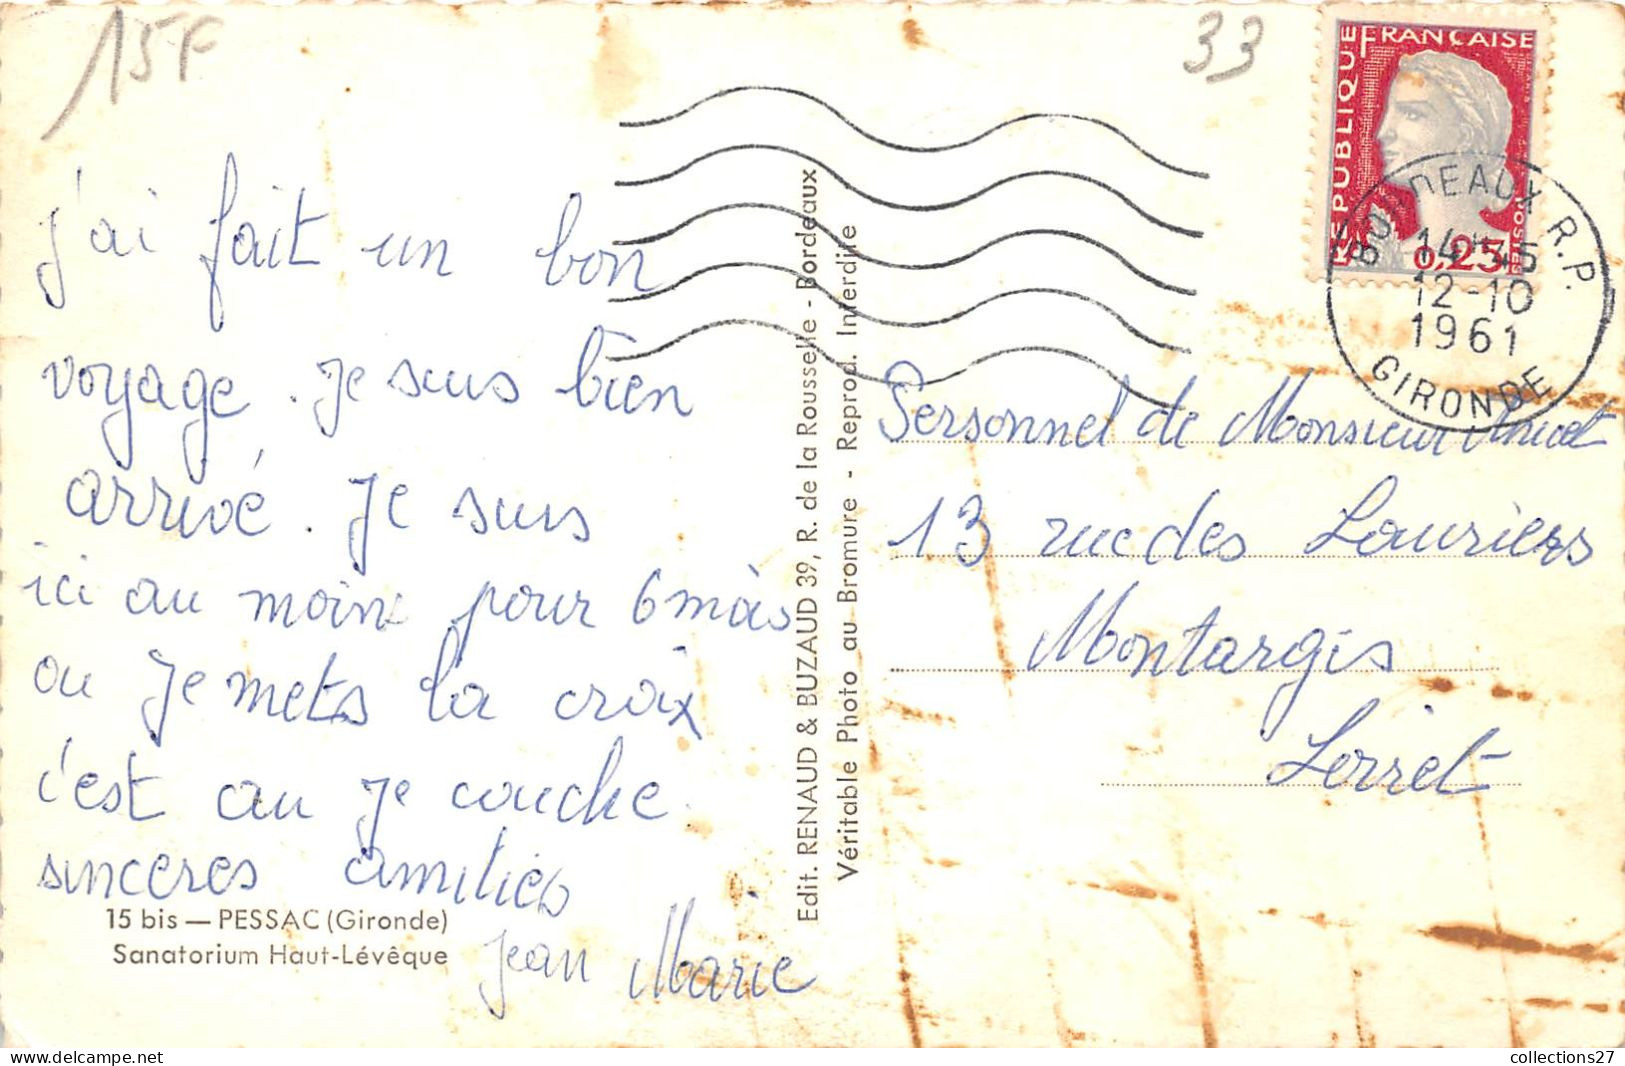 15F
33
REPUBLIQUE FRANÇAISE
0,25
BORDEAUX R.P.
14H45
12-10
1961
GIRONDE
j'ai fait un bon
voyage. Je suis bien
arrivé. Je suis
ici au moins pour 6 mois
ou Je mets la croix
c'est ou je couche.
sinceres amitiés
Jean Marie
15 bis — PESSAC (Gironde)
Sanatorium Haut-Lévêque
Edit. RENAUD & BUZAUD 39, R. de la Rousselle - Bordeaux
Véritable Photo au Bromure - Reprod. Interdite
Personnel de Monsieur
13 rue des Lauriers
Montargis
Loiret
collections27